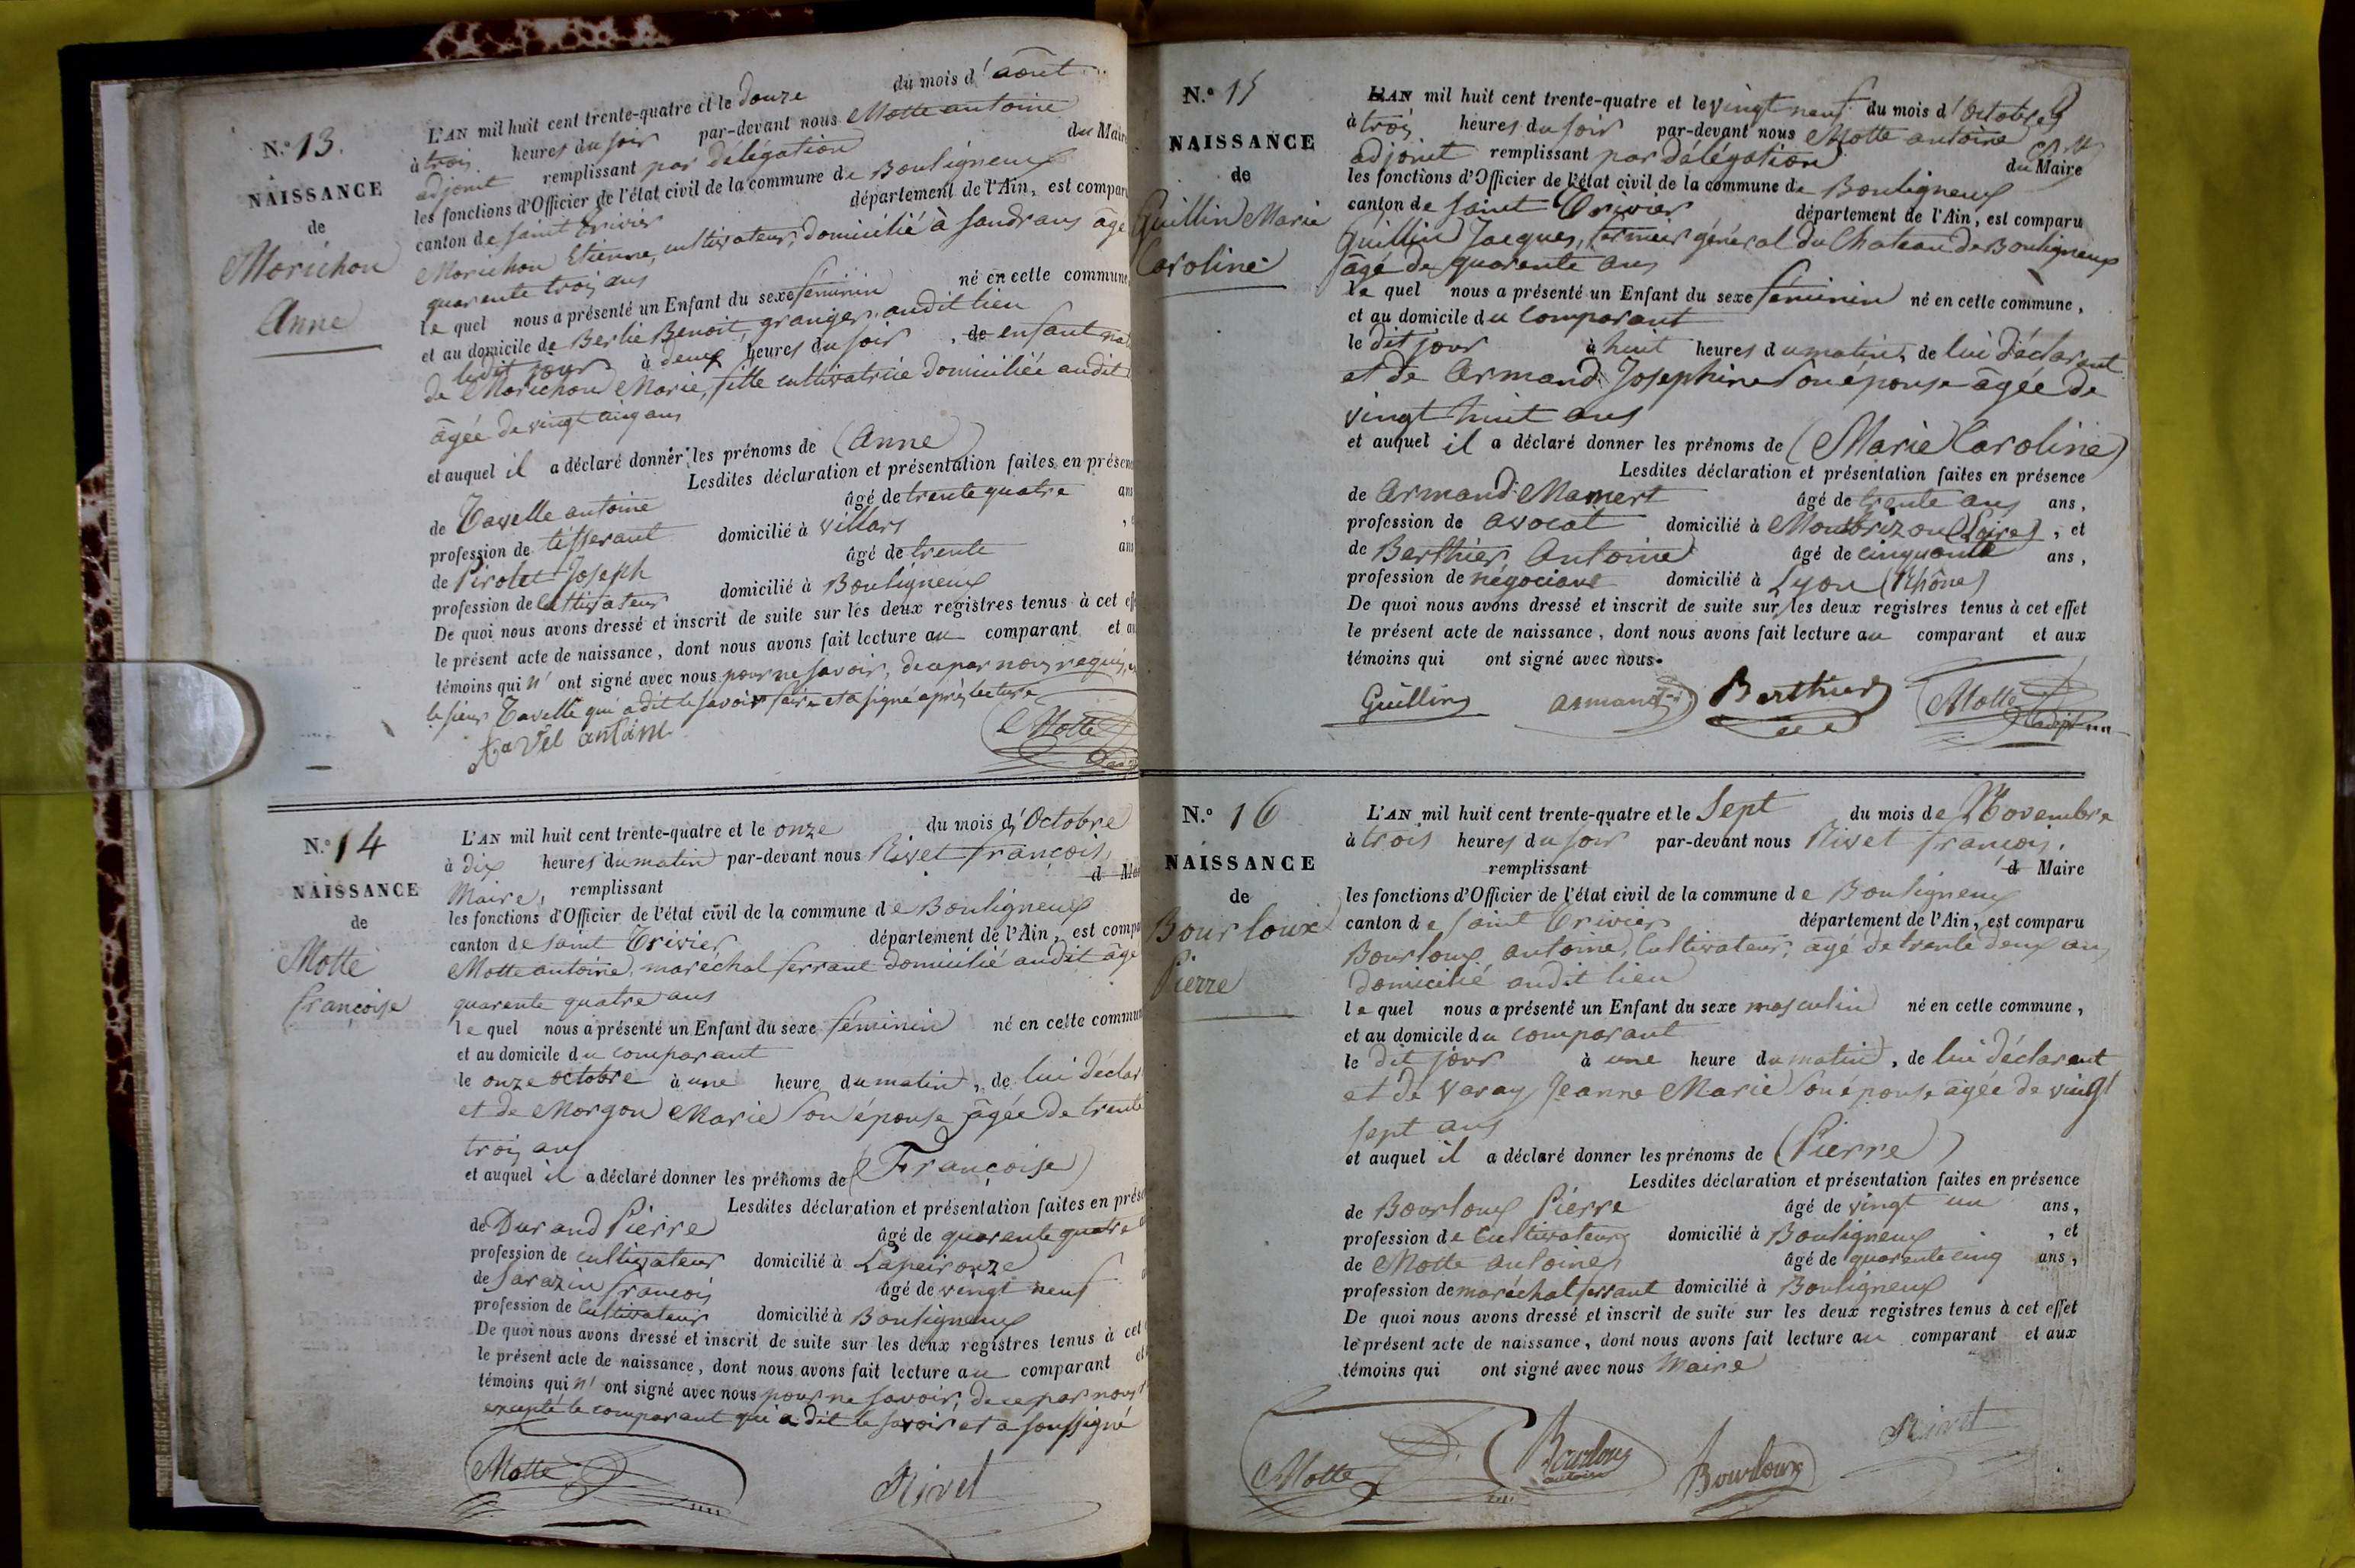 N.° 13.
NAISSANCE
de
Morichon
Anne
L'AN mil huit cent trente-quatre et le douze du mois d'août
à trois heures du soir par-devant nous Motte antoine
adjoint remplissant par délégation du Maire
les fonctions d'Officier de l'état civil de la commune de Bouligneux
canton de saint Trivier département de l'Ain, est compar
Morichon Etienne, cultivateur, domicilié à Sandrans âgé
quarente trois ans
le quel nous a présenté un Enfant du sexe féminin né en cette commune
et au domicile de Berlie Benoit, granger, audit lieu
le dit jour à deux heures du soir, de enfant nat
de Morichon Marie, fille cultivatrice domiciliée audit
âgée de vingt cinq ans
et auquel il a déclaré donner les prénoms de (Anne)
Lesdites déclaration et présentation faites en présen
de Tavelle antoine âgé de trente quatre ans
profession de tisserant domicilié à villars
de Pirolet Joseph âgé de trente ans
profession de Cultivateur domicilié à Bouligneux
De quoi nous avons dressé et inscrit de suite sur les deux registres tenus à cet eff
le présent acte de naissance, dont nous avons fait lecture au comparant et au
témoins qui n'ont signé avec nous pour ne savoir, de ce par nous requis,
le sieur Tavelle qui a dit le savoir faire et a signé après lecture
tavel antoine
Motte
N.° 14
NAISSANCE
de
Motte
françoise
L'AN mil huit cent trente-quatre et le onze du mois d'Octobre
à dix heures du matin par-devant nous Rivet françois,
Maire, remplissant d Mai
les fonctions d'Officier de l'état civil de la commune de Bouligneux
canton de saint Trivier département de l'Ain, est compa
Motte antoine, maréchal ferrant domicilié audit âgé
quarente quatre ans
le quel nous a présenté un Enfant du sexe féminin né en cette commun
et au domicile du comparant
le onze octobre à une heure du matin, de lui déclar
et de Morgon Marie son épouse âgée de trente
trois ans
et auquel il a déclaré donner les prénoms de (Françoise)
Lesdites déclaration et présentation faites en prése
de Durand Pierre âgé de quarente quatre
profession de cultivateur domicilié à Lapeirouze
de Sarazin françois âgé de vingt neuf
profession de Cultivateur domicilié à Bouligneux
De quoi nous avons dressé et inscrit de suite sur les deux registres tenus à cet
le présent acte de naissance, dont nous avons fait lecture au comparant et
témoins qui n'ont signé avec nous pour ne savoir, de ce par nous
excepté le comparant qui a dit le savoir et a soussigné
Motte Rivet
N.° 15
NAISSANCE
de
Guillin Marie
Caroline
L'AN mil huit cent trente-quatre et le vingt neuf du mois d'Octobre
à trois heures du soir par-devant nous Motte antoine
adjoint remplissant par délégation du Maire
les fonctions d'Officier de l'état civil de la commune de Bouligneux
canton de saint Trivier département de l'Ain, est comparu
Guillin Jacques, fermier général du Chateau de Bouligneux
âgé de quarente ans
le quel nous a présenté un Enfant du sexe féminin né en cette commune,
et au domicile du comparant
le dit jour à huit heures du matin, de lui déclarent
et de Armand Josephine son épouse âgée de
vingt huit ans
et auquel il a déclaré donner les prénoms de (Marie Caroline)
Lesdites déclaration et présentation faites en présence
de Armand Mamert âgé de trente ans ans,
profession de avocat domicilié à Montbrizon (Loire), et
de Berthier Antoine âgé de cinquante ans,
profession de négociant domicilié à Lyon (Rhône)
De quoi nous avons dressé et inscrit de suite sur les deux registres tenus à cet effet
le présent acte de naissance, dont nous avons fait lecture au comparant et aux
témoins qui ont signé avec nous.
Guillin armand Berthier Motte
N.° 16
NAISSANCE
de
Bourloux
Pierre
L'AN mil huit cent trente-quatre et le Sept du mois de Novembre
à trois heures du soir par-devant nous Rivet françois.
remplissant d Maire
les fonctions d'Officier de l'état civil de la commune de Bouligneux
canton de saint Trivier département de l'Ain, est comparu
Bourloux antoine, Cultivateur, âgé de trente deux ans
domicilié audit lieu
le quel nous a présenté un Enfant du sexe masculin né en cette commune,
et au domicile du comparant
le dit jour à une heure du matin, de lui déclarent
et de Varay Jeanne Marie son épouse âgée de vingt
sept ans
et auquel il a déclaré donner les prénoms de (Pierre)
Lesdites déclaration et présentation faites en présence
de Bourloux Pierre âgé de vingt un ans,
profession de Cultivateur domicilié à Bouligneux, et
de Motte antoine âgé de quarente cinq ans,
profession de maréchal ferrant domicilié à Bouligneux
De quoi nous avons dressé et inscrit de suite sur les deux registres tenus à cet effet
le présent acte de naissance, dont nous avons fait lecture au comparant et aux
témoins qui ont signé avec nous Maire
Motte Bourloux antoine Bourloux Rivet